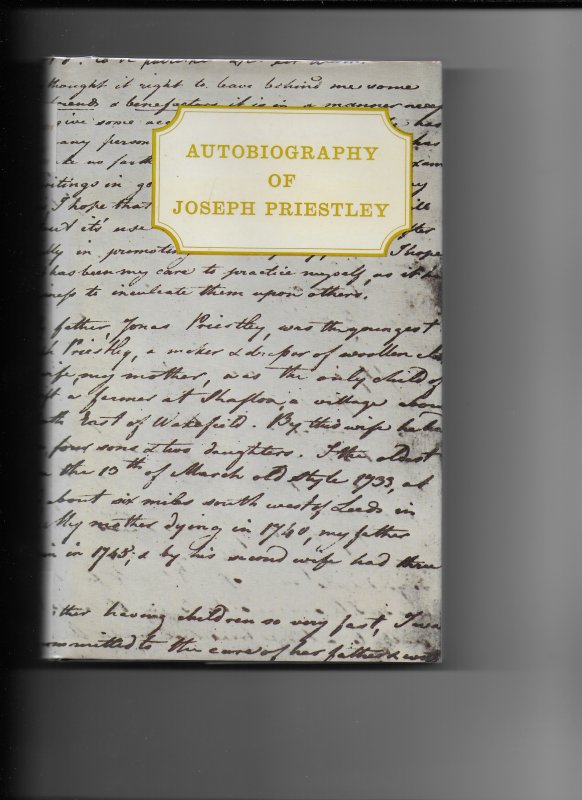 thought it right to leave behind me some
friends & benefactors it is in a manner
give some
any person has
as
writings in
I hope that
but it's use after
in promoting I hope
has been my care to practice myself, as it
to inculcate them upon others.
AUTOBIOGRAPHY
OF
JOSEPH PRIESTLEY
father, Jonas Priestley, was the youngest
Priestley, a maker & dresser of woollen
wife, my mother, was the only child of
a farmer at Shafton, a village
East of Wakefield. By this wife he
four sons & two daughters. I the oldest
the 13th of March old style 1733, at
about six miles south west of Leeds in
My mother dying in 1740, my father
in 1745, & by his second wife had three
having children so very fast, I was
committed to the care of her father &